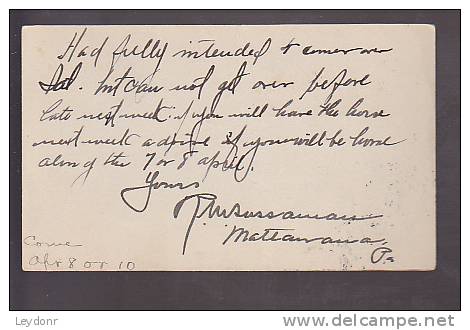 Had fully intended to come over
Sat. but can not get over before
late next week. if you will have the horse
next week advise if you will be home
along the 7 or 8 april.
Yours
Mattawana
Pa
Come
Apr 8 or 10
Leydonr
www.delcampe.net